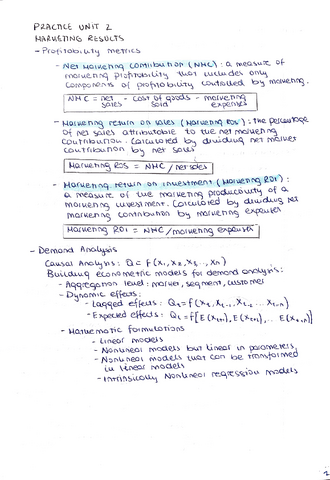 PRACTICE UNIT 2
MARKETING RESULTS
- Profitability metrics
- Net Marketing Contribution (NMC): a measure of
marketing profitability that includes only
components of profitability controlled by marketing.
NMC = net sales - cost of goods sold - marketing expenses
- Marketing return on sales (Marketing ROS): the percentage
of net sales attributable to the net marketing
contribution. Calculated by dividing net market
contribution by net sales
Marketing ROS = NMC / net sales
- Marketing return on investment (Marketing ROI):
a measure of the marketing productivity of a
marketing investment. Calculated by dividing net
marketing contribution by marketing expenses
Marketing ROI = NMC / marketing expenses
- Demand Analysis
Causal Analysis: Q = f(X1, X2, X3..., Xn)
Building econometric models for demand analysis:
- Aggregation level: market, segment, customer
- Dynamic effects:
- Lagged effects: Qt = f(Xt, Xt-1, Xt-2 ... Xt-n)
- Expected effects: Qt = f[E(Xt+1), E(Xt+2), ... E(Xt+n)]
- Mathematic formulations
- Linear models
- Nonlinear models but linear in parameters
- Nonlinear models that can be transformed
in linear models
- Intrinsically Nonlinear regression models
1